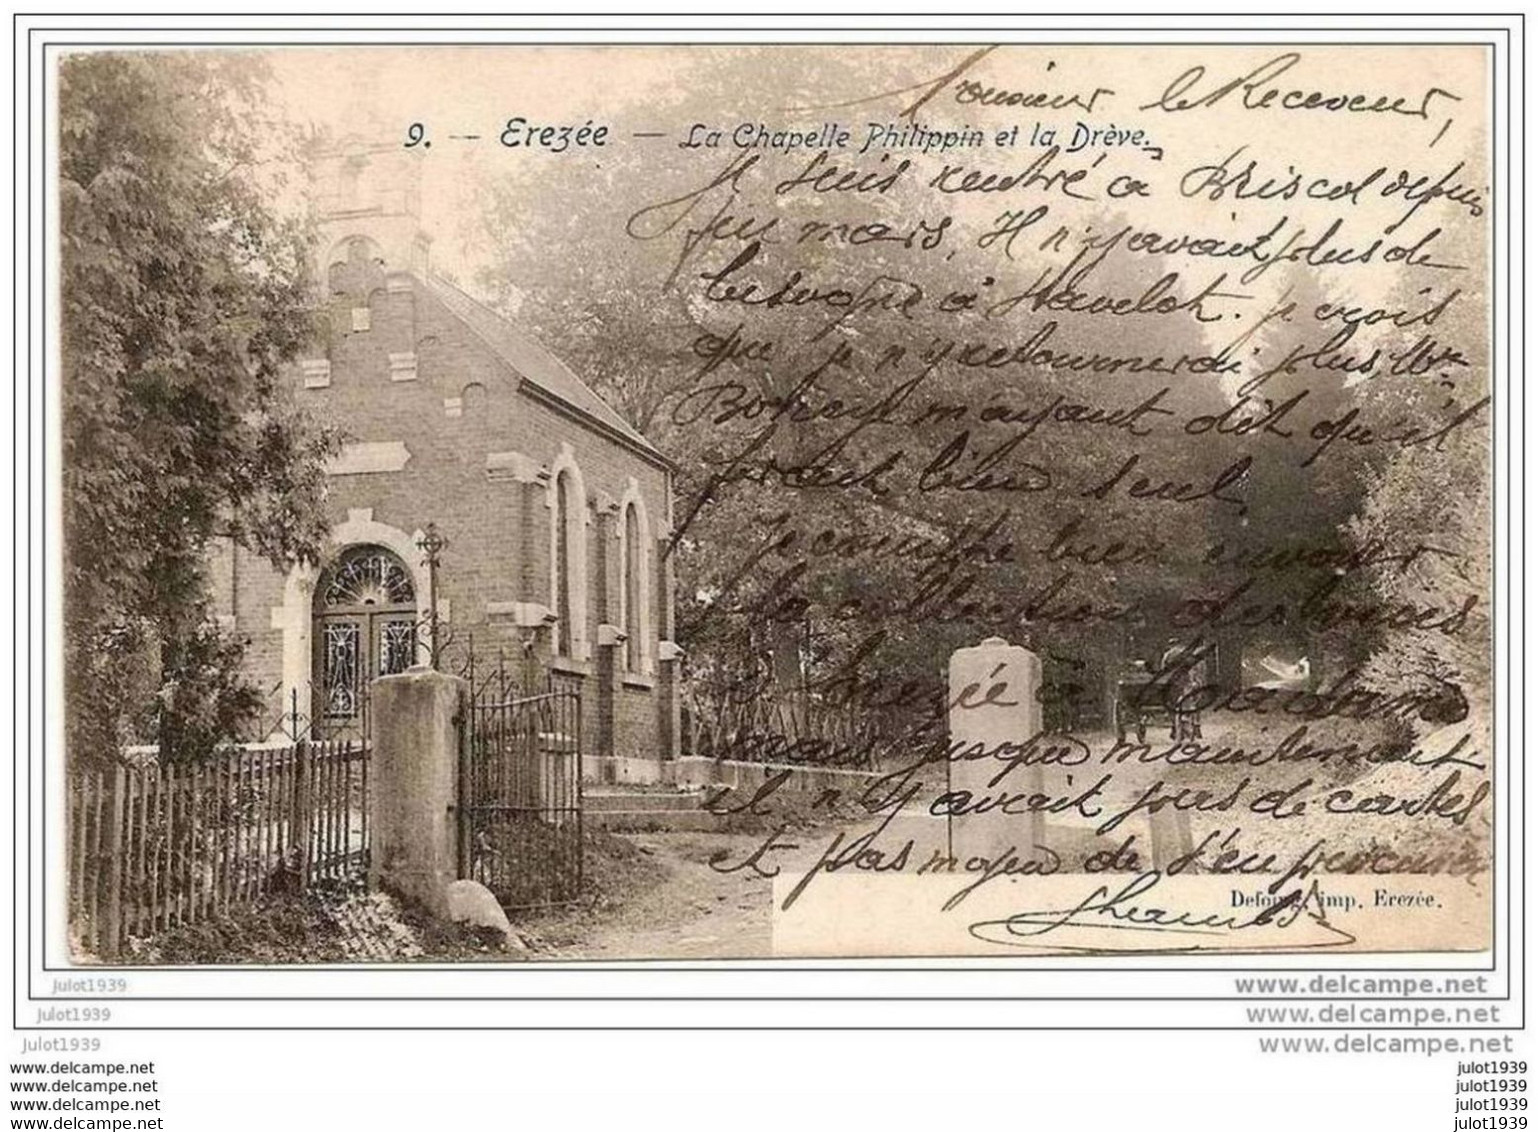 9. — Erezée — La Chapelle Philippin et la Drève.
Monsieur le Receveur,
Je suis rentré à Briscol depuis
fin mars, Il n'y avait plus de
besogne à Havelot. je crois
que je n'y retournerai plus, Mr
m'ayant dit qu'il
serait bien seul
Je compte bien envoyer
la collection des tomes
à Erezée à
mais jusque maintenant
il n'y avait pas de cartes
et pas moyen de s'en procurer
Defoing, imp. Erezée.
julot1939
www.delcampe.net
julot1939
www.delcampe.net
julot1939
www.delcampe.net
www.delcampe.net
julot1939
www.delcampe.net
julot1939
www.delcampe.net
julot1939
www.delcampe.net
julot1939